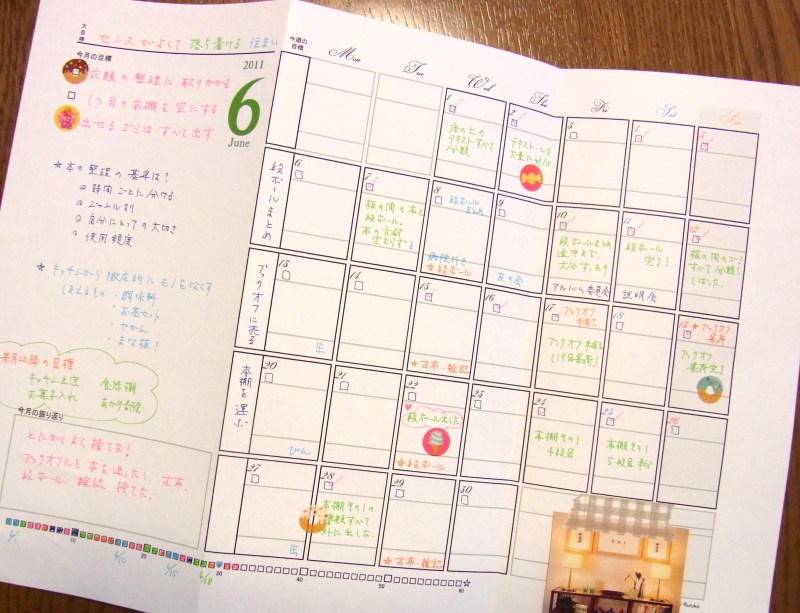 大目標
センスがよくて 落ち着ける 住まい
今月の目標
衣類の整理に取りかかる
1つ目の本棚を空にする
出せるゴミはすべて出す
2011
6
June
☆本の整理の基準は?
時間ごとに分ける
ジャンル
自分にとっての大切さ
使用頻度
☆キッチンから徹底的にモノをなくす
しまえるもの・調味料
・お茶セット
・やかん
・まな板!
来月以降の目標
キッチン
お菓子入れ
今月の振り返り
とにかくよく捨てた!
ブックオフにも本を送ったし、古布、
段ボール、雑誌、捨てた。
今週の目標
Mon
Tue
Wed
Thu
Fri
Sat
Sun
1
床の上の
テキストすべて
分類
2
テキスト・CD
大量に
3
4
5
段ボールまとめ
6
7
板の間の本と
段ボール。
本の方針
定まらず!
8
段ボール
まとめ
☆段ボール
9
10
段ボールまとめ
途中まで。
大分すっきり
アルバム委員会
11
段ボール
完了!
説明会
12
板の間のゴミ
すべて分類し
しばった。
ブックオフに売る
13
缶
14
15
☆古布・雑誌
16
17
ブックオフ
手配
ブックオフ手配
(19日集荷)
18
19
☆ブックオフ
集荷
ブックオフ
集荷完了!
本棚を選ぶ
20
びん
21
22
段ボール出しました
☆段ボール
23
24
本棚その1
4段目
25
本棚その1
5段目
26
27
缶
28
本棚その1の
書類すべて
外に出した。
29
☆古布・雑誌
30
10
20
30
40
50
60
6/1
6/10
6/15
6/18